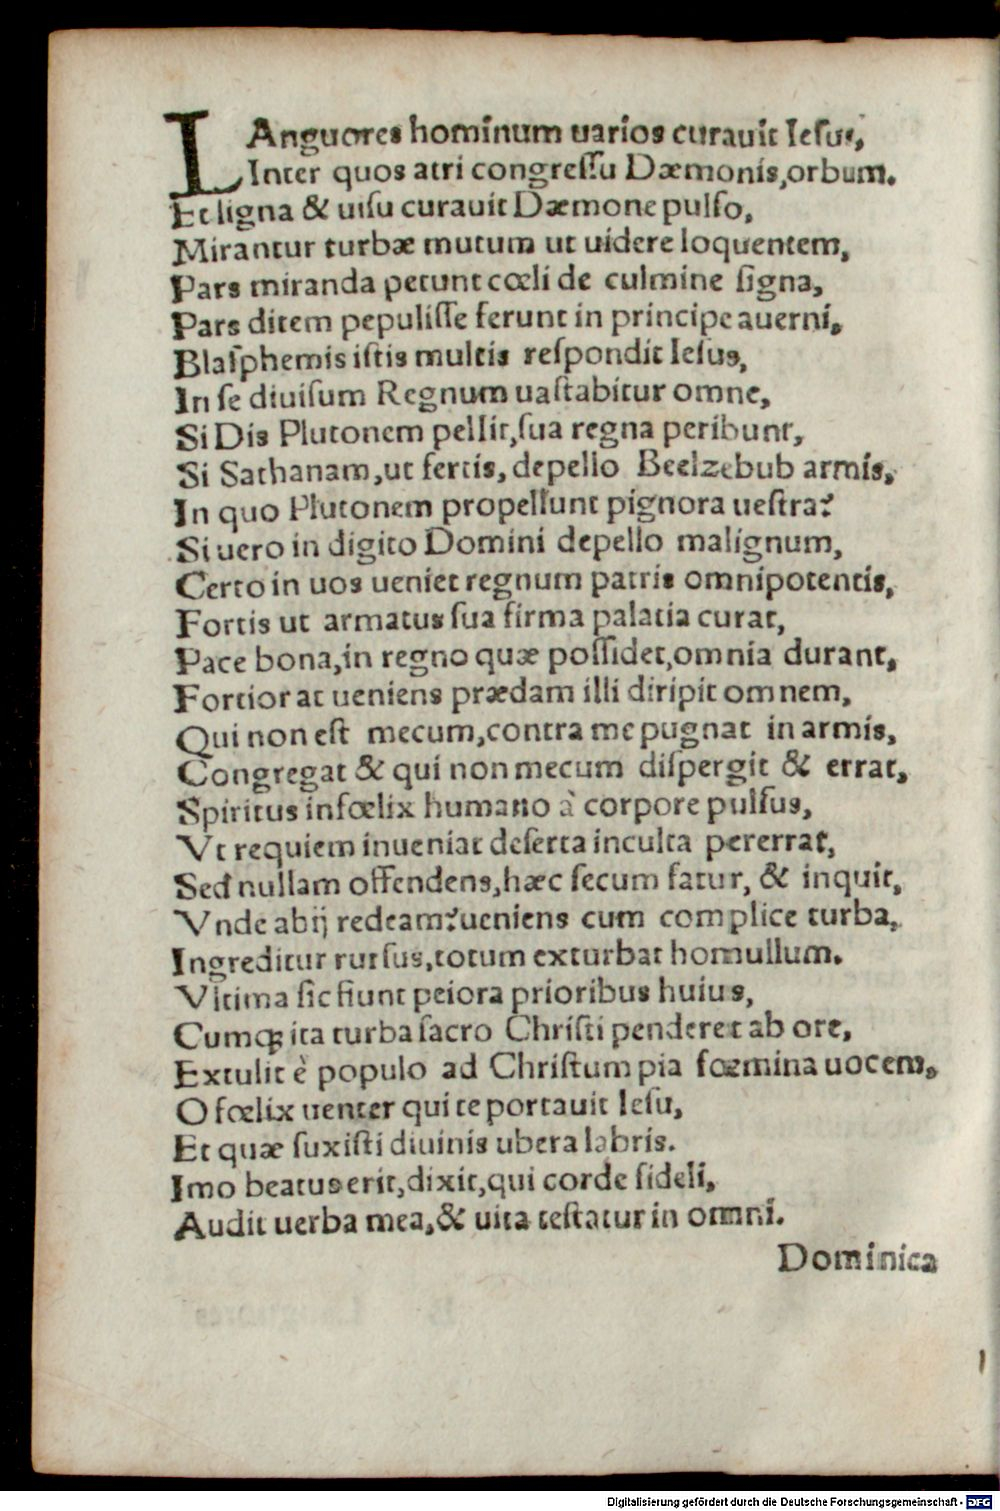 LAnguores hominum uarios curauit Iesus,
Inter quos atri congressu Dæmonis, orbum.
Et ligna & uisu curauit Dæmone pulso,
Mirantur turbæ mutum ut uidere loquentem,
Pars miranda petunt cœli de culmine signa,
Pars ditem pepulisse ferunt in principe auerni,
Blasphemis istis multis respondit Iesus,
In se diuisum Regnum uastabitur omne,
Si Dis Plutonem pellit, sua regna peribunt,
Si Sathanam, ut fertis, depello Beelzebub armis,
In quo Plutonem propellunt pignora uestra?
Si uero in digito Domini depello malignum,
Certo in uos ueniet regnum patris omnipotentis,
Fortis ut armatus sua firma palatia curat,
Pace bona, in regno quæ possidet, omnia durant,
Fortior at ueniens prædam illi diripit omnem,
Qui non est mecum, contra me pugnat in armis,
Congregat & qui non mecum dispergit & errat,
Spiritus infœlix humano à corpore pulsus,
Vt requiem inueniat deserta inculta pererrat,
Sed nullam offendens, hæc secum fatur, & inquit,
Vnde abij redeam? ueniens cum complice turba,
Ingreditur rursus, totum exturbat homullum.
Vltima sic fiunt peiora prioribus huius,
Cumq; ita turba sacro Christi penderet ab ore,
Extulit è populo ad Christum pia fœmina uocem,
O fœlix uenter qui te portauit Iesu,
Et quæ suxisti diuinis ubera labris.
Imo beatus erit, dixit, qui corde fideli,
Audit uerba mea, & uita testatur in omni.
Dominica
Digitalisierung gefördert durch die Deutsche Forschungsgemeinschaft - DFG